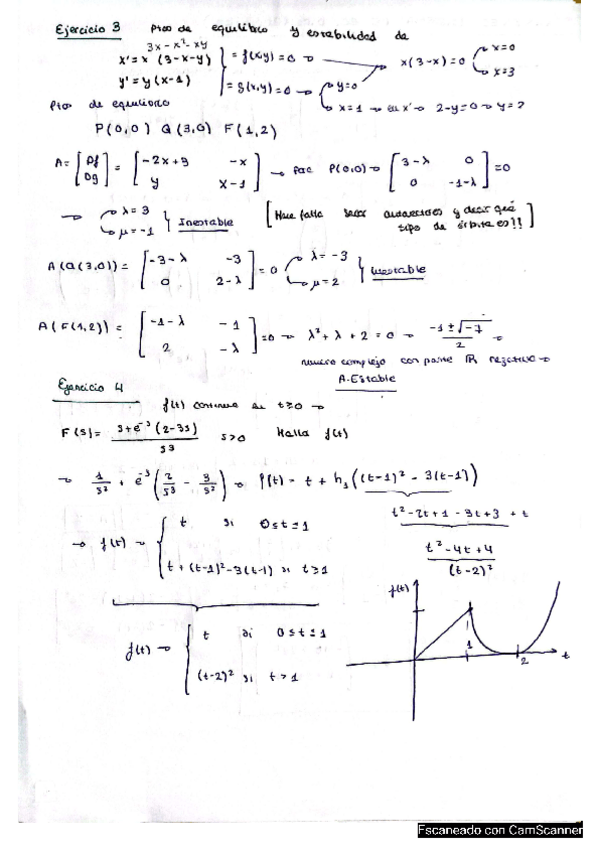 Ejercicio 3 Ptos de equilibrio y estabilidad de
3x - x² - xy
x' = x (3-x-y) } = f(x,y) = 0 → x(3-x) = 0 → x=0
→ x=3
y' = y (x-1) } = g(x,y) = 0 → y=0
→ x=1 → en x' → 2-y=0 → y=2
Ptos de equilibrio
P(0,0) Q(3,0) F(1,2)
A = [Df Dg] = [-2x+3 -x y x-1] → Para P(0,0) → [3-λ 0 0 -1-λ] = 0
→ λ=3
μ=-1 } Inestable [Hace falta sacar autovectores y decir qué
tipo de órbita es!!]
A(Q(3,0)) = [-3-λ -3 0 2-λ] = 0 λ=-3
μ=2 } Inestable
A(F(1,2)) = [-1-λ -1 2 -λ] = 0 → λ²+λ+2 = 0 → -1±√-7 / 2 →
numero complejo con parte ℝ negativa →
A. Estable
Ejercicio 4
f(t) continua si t≥0 →
F(s) = s+e⁻ˢ(2-3s) / s³ s>0 Halla f(t)
→ 1/s² + e⁻ˢ (2/s³ - 3/s²) → f(t) = t + h₁((t-1)² - 3(t-1))
t²-2t+1-3t+3 + t
→ f(t) → { t si 0≤t≤1
t²-4t+4
t+(t-1)²-3(t-1) si t≥1
(t-2)²
f(t)
f(t) → { t si 0≤t≤1
(t-2)² si t>1
1 2 t
Escaneado con CamScanner